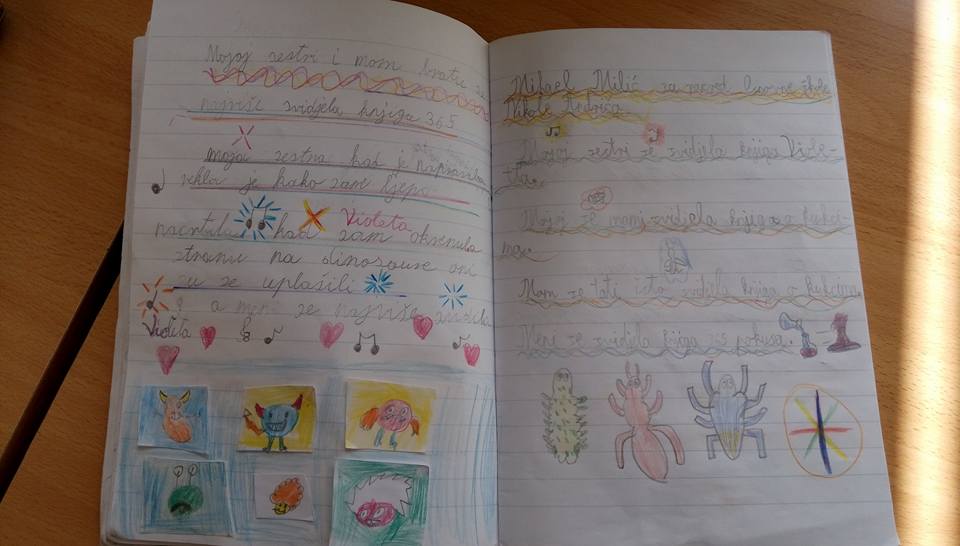 Mojoj sestri i mom bratu se
najviše svidjela knjiga 365
moja sestra kad je napravila
rekla je kako sam ljepo
Violeta
nacrtala kad sam okrenula
stranu na dinosouse oni
su se uplašili
a meni se najviše svidjela
Violeta
Mihael Milić za razred Osnovne škole
Nikole Andrića
Mojoj sestri se svidjela knjiga Viole-
ta.
Mojoj se mami svidjela knjiga o kukci-
ma.
Mom se tati isto svidjela knjiga o kukcima.
Meni se svidjela knjiga 365 pokusa.